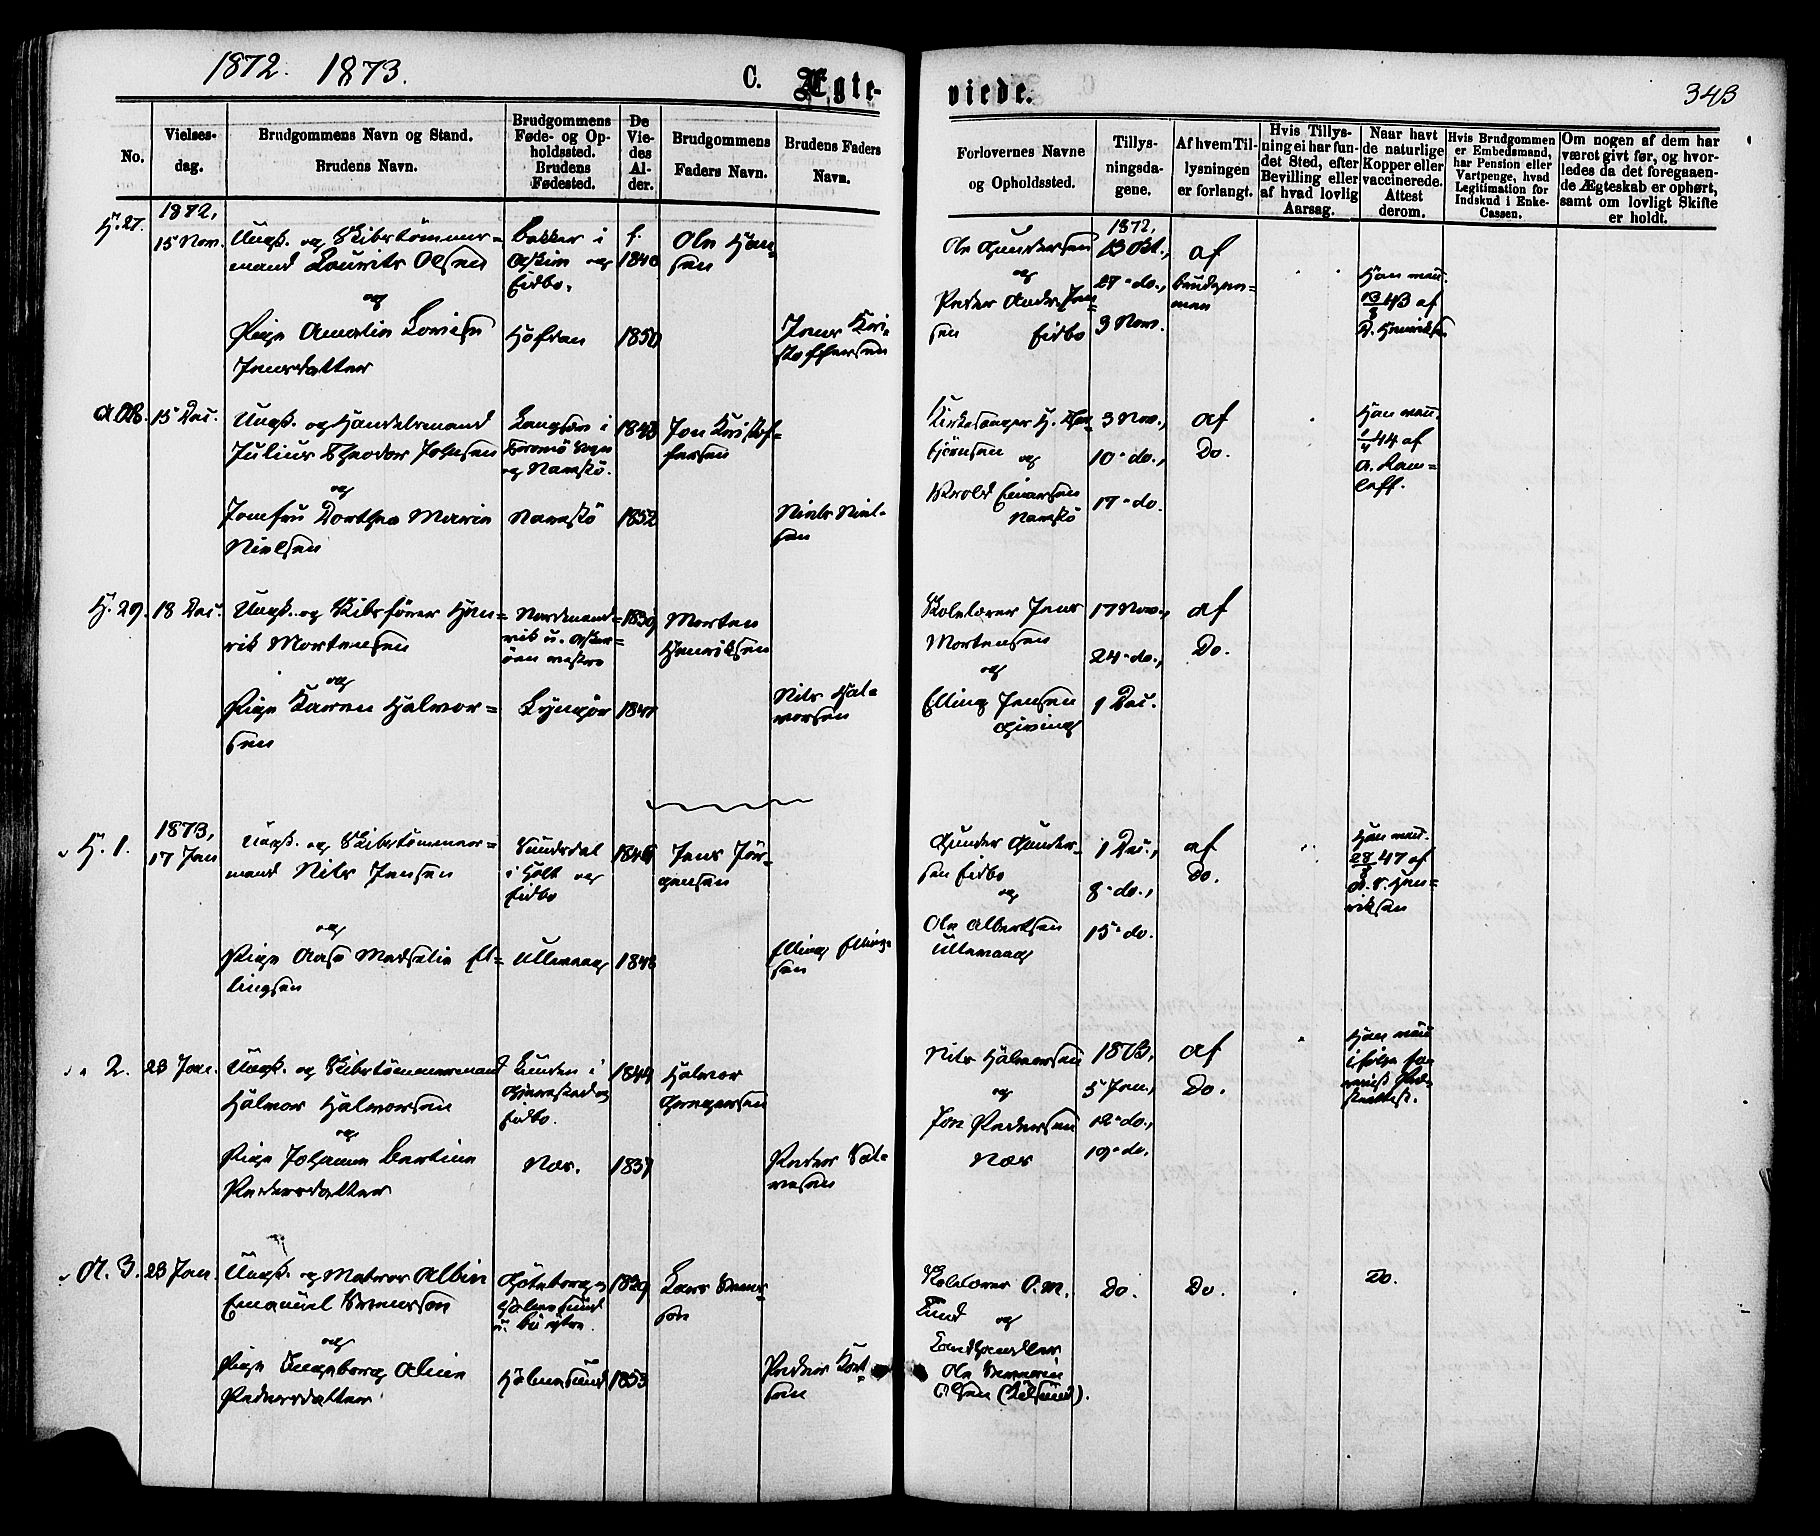 1872. 1873.
C. Ægteviede.
343
No.
Vielsesdag.
Brudgommens Navn og Stand.
Brudens Navn.
Brudgommens
Føde- og Op-
holdssted.
Brudens
Fødested.
De
Vie-
des
Al-
der.
Brudgommens
Faders Navn.
Brudens Faders
Navn.
Forlovernes Navne
og Opholdssted.
Tillys-
ningsda-
gene.
Af hvem Til-
lysningen
er forlangt.
Hvis Tillys-
ning ei har fun-
det Sted, efter
Bevilling eller
af hvad lovlig
Aarsag.
Naar havt
de naturlige
Kopper eller
vaccinerede.
Attest
derom.
Hvis Brudgommen
er Embedsmand,
har Pension eller
Vartpenge, hvad
Legitimation for
Indskud i Enke-
Cassen.
Om nogen af dem har
været givt før, og hvor-
ledes da det foregaaen-
de Ægteskab er ophørt,
samt om lovligt Skifte
er holdt.
H. 27.
1872,
15 Nov.
Ungk. og Skibstömmer=
mand Laurits Olsen
og
Pige Amalie Lovise
Jensdatter
Bakken i
Askim og
Eidbo.
Hofdan
f.
1840
1850
Ole Han=
sen
Jens Kri=
stoffersen
Ole Gundersen
og
Peder Anders Jen=
sen Eidbo
1872,
13 Okt.,
27 do.,
3 Nov.
af
Brudgom=
men
Han vacc.
13/8 43 af
D. Henriksen
A 28.
15 Dec.
Ungk. og Handelsmand
Julius Theodor Johnsen
og
Jomfru Dorthea Marie
Nielsen
Langsæe i
Tromö Sogn
og Narestö.
Narestö
1843
1852
Jon Kristof=
fersen
Niels Niel=
sen
Kirkesanger H. Tor=
björnsen
og
Skrold Einarsen
Narestö
3 Nov.,
10 do.,
17 do.
af
Do.
Han vacc.
1/4 44 af
A. Ram=
leff.
H. 29.
18 Dec.
Ungk. og Skibsförer Hen=
rik Mortensen
og
Pige Karen Halvor=
sen
Nordmand=
vik u. Asker=
öen vestre
Lyngör
1839
1841
Morten
Henriksen
Nils Hal=
vorsen
Skolelærer Jens
Mortensen
og
Elling Jensen
Gieving
17 Nov.,
24 do.,
1 Dec.
af
Do.
H. 1.
1873,
17 Jan
Ungk. og Skibstömmer=
mand Nils Jensen
og
Pige Aase Mathilie El=
lingsen
Sundsdal
i Holt og
Eidbo
Ullevaag
1846
1848
Jens Jör=
gensen
Elling Elling=
sen
Gunder Gunder=
sen Eidbo
og
Ole Albertsen
Ullevaag
1 Dec.,
8 do.,
15 do.
af
Do.
Han vacc.
28/8 47 af
D. S. Hen=
riksen
" 2.
23 Jan.
Ungk. og Skibstömmermand
Halvor Halvorsen
og
Pige Johanne Bertine
Pedersdatter
Lunden i
Gjerestad og
Eidbo.
Næs.
1844
1837
Halvor
Gregersen
Peder Sal=
vesen
Nils Halvorsen
og
Jon Pedersen
Næs
1873,
5 Jan.,
12 do.,
19 do.
af
Do.
Han vacc
ifölge for=
A. 3.
23 Jan.
Ungk. og Matros Albin
Emanuel Svensson
og
Pige Ingeborg Aline
Pedersdatter
Göteborg og
Holmesund
Holmesund
1829
1853
Lars Svens=
son
Peder Knut
sen
Skolelærer P. M.
Lund
og
Landhandler
Ole Severin
Olsen (Kilsund).
Do.
Do.
Do.